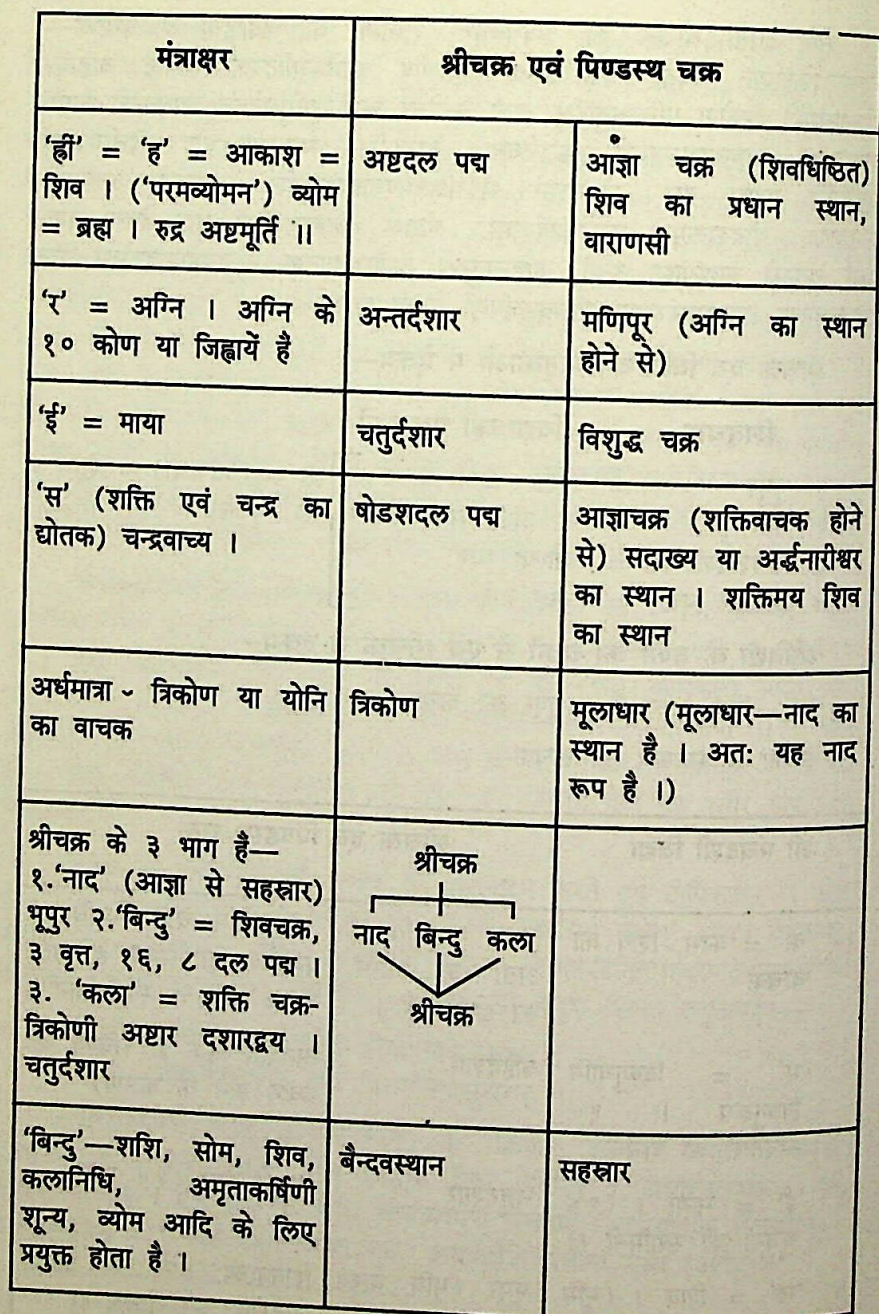 मंत्राक्षर
श्रीचक्र एवं पिण्डस्थ चक्र
‘ह्रीं’ = ‘ह’ = आकाश =
शिव । (‘परमव्योमन’) व्योम
= ब्रह्म । रुद्र अष्टमूर्ति ।।
अष्टदल पद्म
आज्ञा चक्र (शिवधिष्ठित)
शिव का प्रधान स्थान,
वाराणसी
‘र’ = अग्नि । अग्नि के
१० कोण या जिह्वायें हैं
अन्तर्दशार
मणिपूर (अग्नि का स्थान
होने से)
‘ई’ = माया
चतुर्दशार
विशुद्ध चक्र
‘स’ (शक्ति एवं चन्द्र का
द्योतक) चन्द्रवाच्य ।
षोडशदल पद्म
आज्ञाचक्र (शक्तिवाचक होने
से) सदाख्य या अर्द्धनारीश्वर
का स्थान । शक्तिमय शिव
का स्थान
अर्धमात्रा - त्रिकोण या योनि
का वाचक
त्रिकोण
मूलाधार (मूलाधार—नाद का
स्थान है । अतः यह नाद
रूप है ।)
श्रीचक्र के ३ भाग हैं—
१.‘नाद’ (आज्ञा से सहस्रार)
भूपुर २.‘बिन्दु’ = शिवचक्र,
३ वृत्त, १६, ८ दल पद्म ।
३. ‘कला’ = शक्ति चक्र-
त्रिकोणी अष्टार दशारद्वय ।
चतुर्दशार
श्रीचक्र
नाद बिन्दु कला
श्रीचक्र
‘बिन्दु’—शशि, सोम, शिव,
कलानिधि, अमृताकर्षिणी
शून्य, व्योम आदि के लिए
प्रयुक्त होता है ।
बैन्दवस्थान
सहस्रार